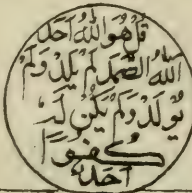 قُلْ هُوَ اللهُ اَحَدٌ
اَللهُ الصَّمَدُ لَمْ يَلِدْ وَلَمْ
يُولَدْ وَلَمْ يَكُنْ لَهُ
كُفُوًا
اَحَدٌ